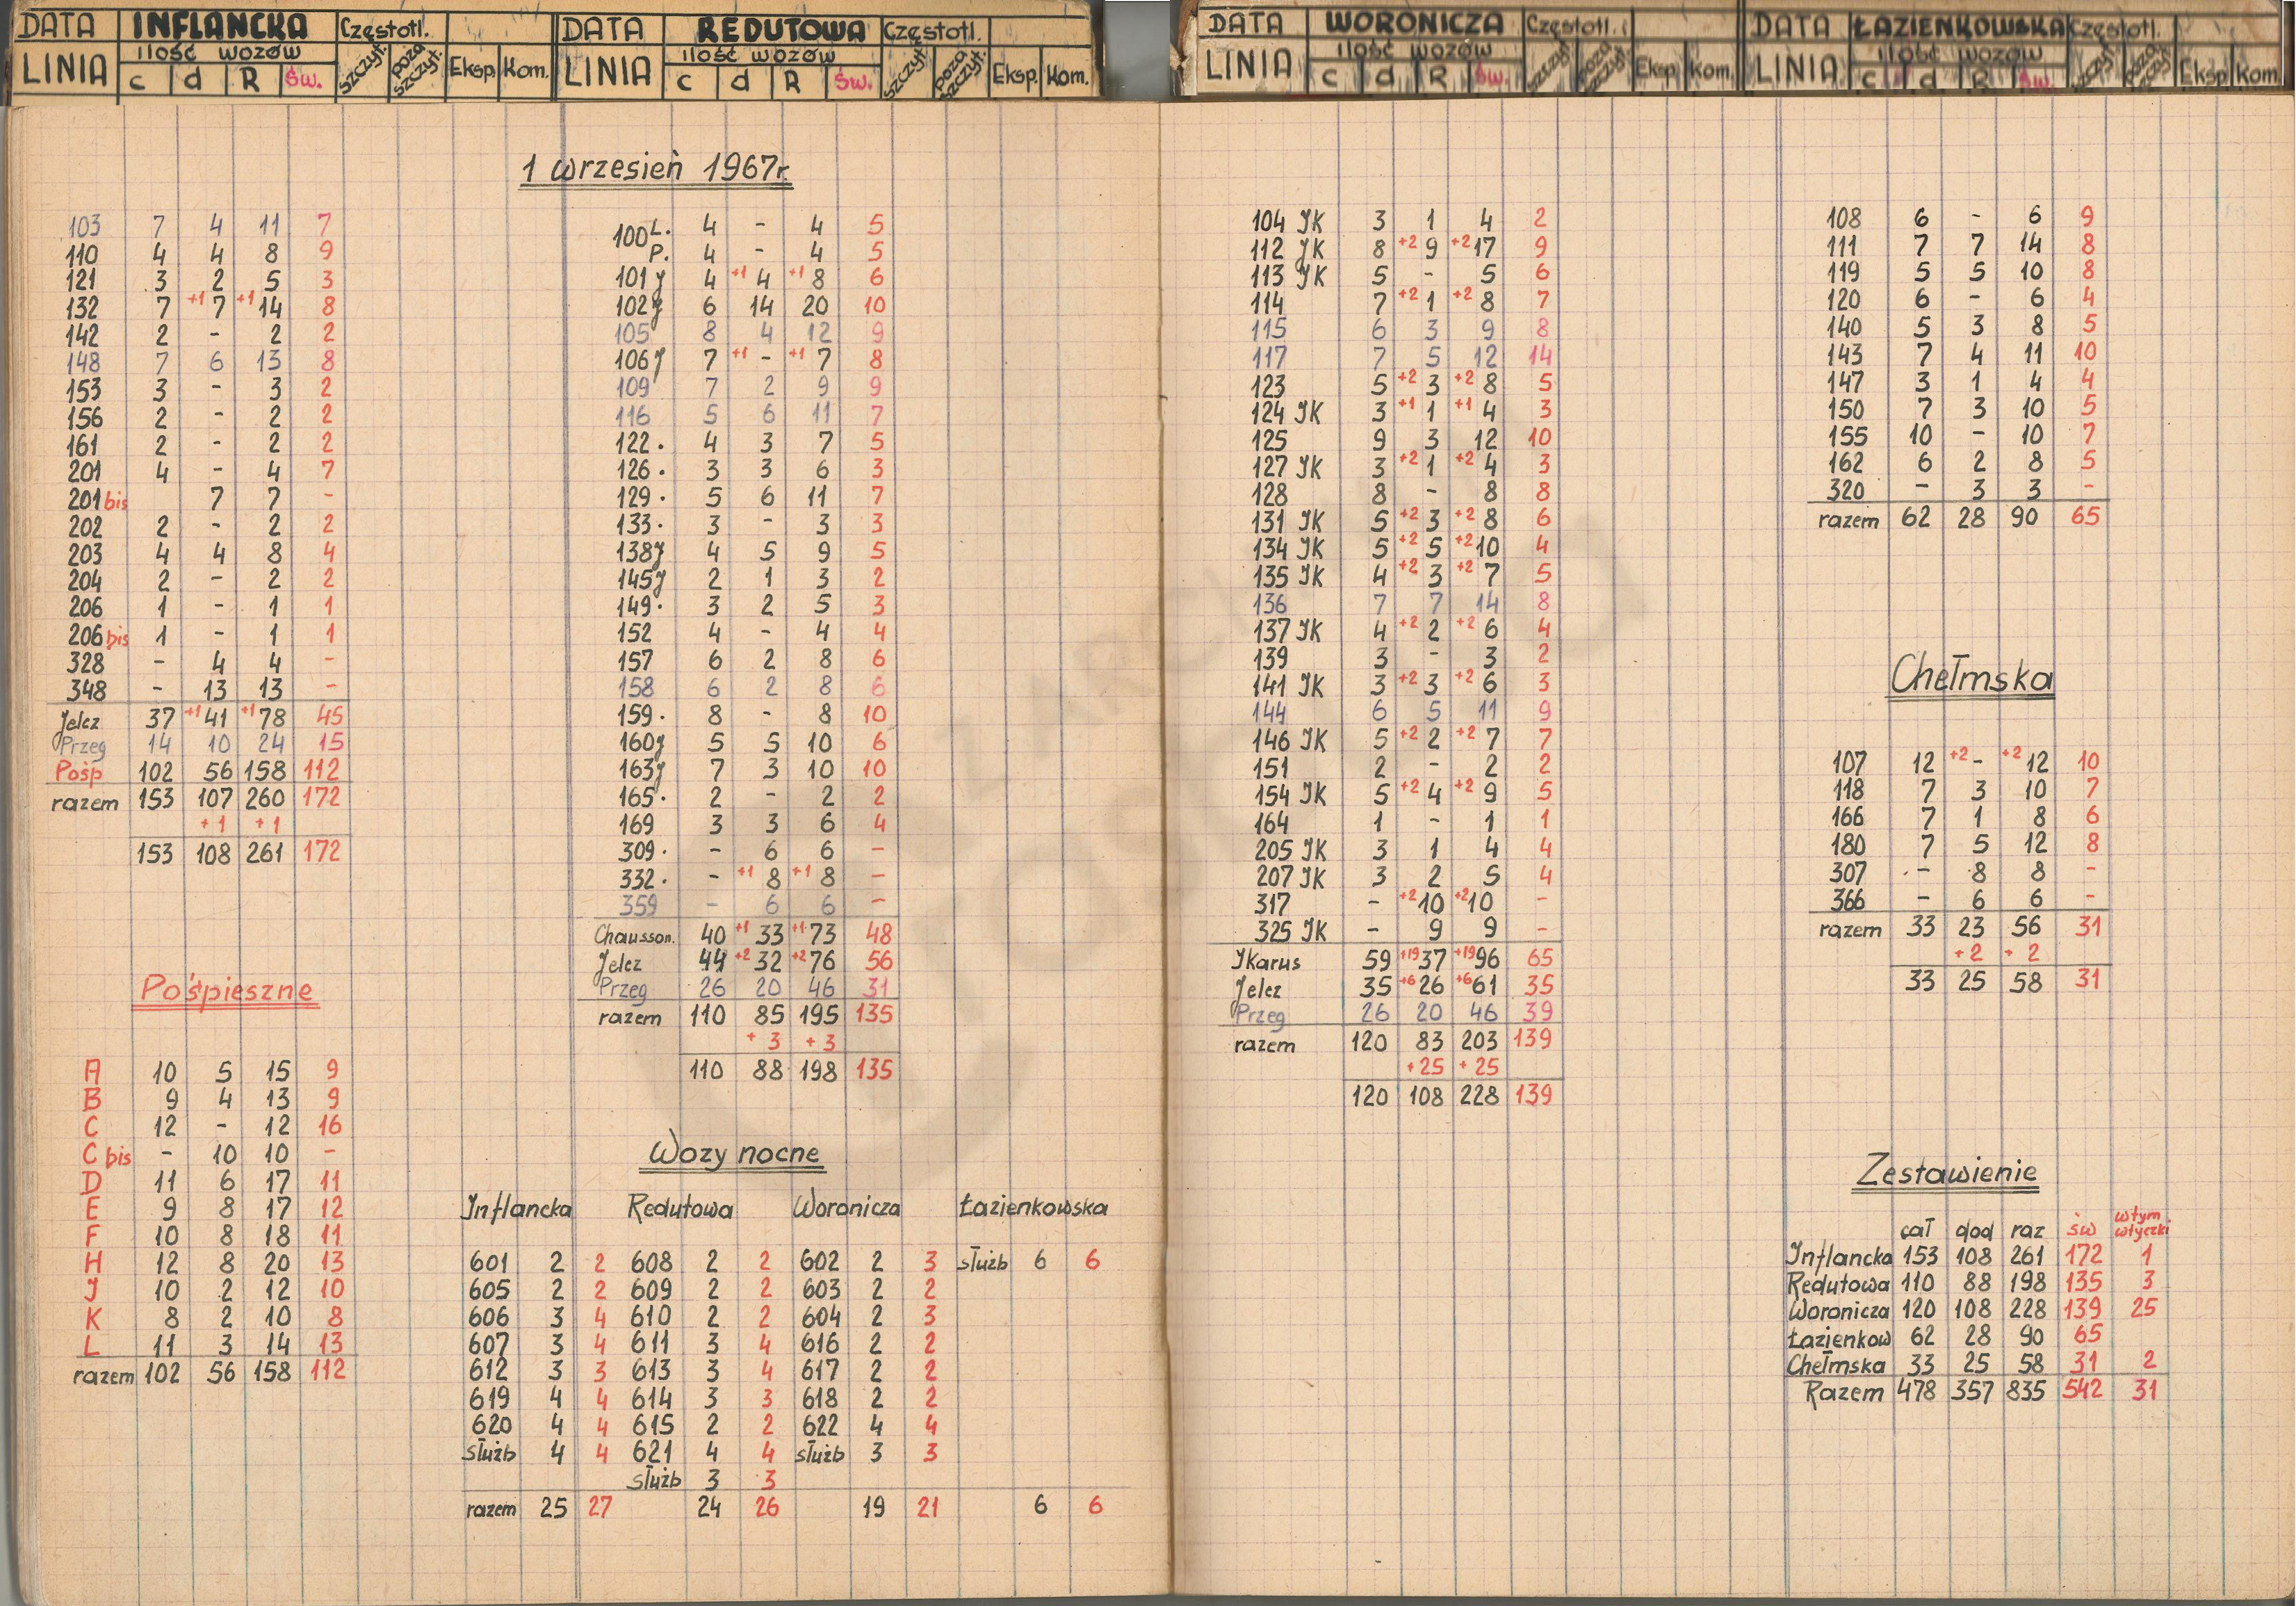 DATA INFLANCKA Częstotl.
LINIA ilość wozów
c d R Św. szczyt. poza szczyt. Eksp. Kom.
DATA REDUTOWA Częstotl.
LINIA ilość wozów
c d R Św. szczyt. poza szczyt. Eksp. Kom.
DATA WORONICZA Częstotl.
LINIA ilość wozów
c d R Św. szczyt. poza szczyt. Eksp. Kom.
DATA ŁAZIENKOWSKA Częstotl.
LINIA ilość wozów
c d R Św. szczyt. poza szczyt. Eksp. Kom.
1 wrzesień 1967r.
103 7 4 11 7
110 4 4 8 9
121 3 2 5 3
132 7 +1 7 +1 14 8
142 2 - 2 2
148 7 6 13 8
153 3 - 3 2
156 2 - 2 2
161 2 - 2 2
201 4 - 4 7
201 bis 7 7 -
202 2 - 2 2
203 4 4 8 4
204 2 - 2 2
206 1 - 1 1
206 bis 1 - 1 1
328 - 4 4 -
348 - 13 13 -
Jelcz 37 +1 41 +1 78 45
Przeg 14 10 24 15
Pośp 102 56 158 112
razem 153 107 260 172
+1 +1
153 108 261 172
Pośpieszne
A 10 5 15 9
B 9 4 13 9
C 12 - 12 16
C bis - 10 10 -
D 11 6 17 11
E 9 8 17 12
F 10 8 18 11
H 12 8 20 13
J 10 2 12 10
K 8 2 10 8
L 11 3 14 13
razem 102 56 158 112
100 L. 4 - 4 5
P. 4 - 4 5
101 J 4 +1 4 +1 8 6
102 J 6 14 20 10
105 8 4 12 9
106 J 7 +1 - +1 7 8
109 7 2 9 9
116 5 6 11 7
122 . 4 3 7 5
126 . 3 3 6 3
129 . 5 6 11 7
133 . 3 - 3 3
138 J 4 5 9 5
145 J 2 1 3 2
149 . 3 2 5 3
152 4 - 4 4
157 6 2 8 6
158 6 2 8 6
159 . 8 - 8 10
160 J 5 5 10 6
163 J 7 3 10 10
165 . 2 - 2 2
169 3 3 6 4
309 . - 6 6 -
332 . - +1 8 +1 8 -
359 - 6 6 -
Chausson. 40 +1 33 +1 73 48
Jelcz 44 +2 32 +2 76 56
Przeg 26 20 46 31
razem 110 85 195 135
+3 +3
110 88 198 135
Wozy nocne
Inflancka Redutowa Woronicza Łazienkowska
601 2 2 608 2 2 602 2 3 służb 6 6
605 2 2 609 2 2 603 2 2
606 3 4 610 2 2 604 2 3
607 3 4 611 3 4 616 2 2
612 3 3 613 3 4 617 2 2
619 4 4 614 3 3 618 2 2
620 4 4 615 2 2 622 4 4
służb 4 4 621 4 4 służb 3 3
służb 3 3
razem 25 27 24 26 19 21 6 6
104 JK 3 1 4 2
112 JK 8 +2 9 +2 17 9
113 JK 5 - 5 6
114 7 +2 1 +2 8 7
115 6 3 9 8
117 7 5 12 14
123 5 +2 3 +2 8 5
124 JK 3 +1 1 +1 4 3
125 9 3 12 10
127 JK 3 +2 1 +2 4 3
128 8 - 8 8
131 JK 5 +2 3 +2 8 6
134 JK 5 +2 5 +2 10 4
135 JK 4 +2 3 +2 7 5
136 7 7 14 8
137 JK 4 +2 2 +2 6 4
139 3 - 3 2
141 JK 3 +2 3 +2 6 3
144 6 5 11 9
146 JK 5 +2 2 +2 7 7
151 2 - 2 2
154 JK 5 +2 4 +2 9 5
164 1 - 1 1
205 JK 3 1 4 4
207 JK 3 2 5 4
317 - +2 10 +2 10 -
325 JK - 9 9 -
Jkarus 59 +19 37 +19 96 65
Jelcz 35 +6 26 +6 61 35
Przeg 26 20 46 39
razem 120 83 203 139
+25 +25
120 108 228 139
108 6 - 6 9
111 7 7 14 8
119 5 5 10 8
120 6 - 6 4
140 5 3 8 5
143 7 4 11 10
147 3 1 4 4
150 7 3 10 5
155 10 - 10 7
162 6 2 8 5
320 - 3 3 -
razem 62 28 90 65
Chełmska
107 12 +2 - +2 12 10
118 7 3 10 7
166 7 1 8 6
180 7 5 12 8
307 - 8 8 -
366 - 6 6 -
razem 33 23 56 31
+2 +2
33 25 58 31
Zestawienie
cał dod raz św w tym wtyczki
Inflancka 153 108 261 172 1
Redutowa 110 88 198 135 3
Woronicza 120 108 228 139 25
Łazienkow 62 28 90 65
Chełmska 33 25 58 31 2
Razem 478 357 835 542 31